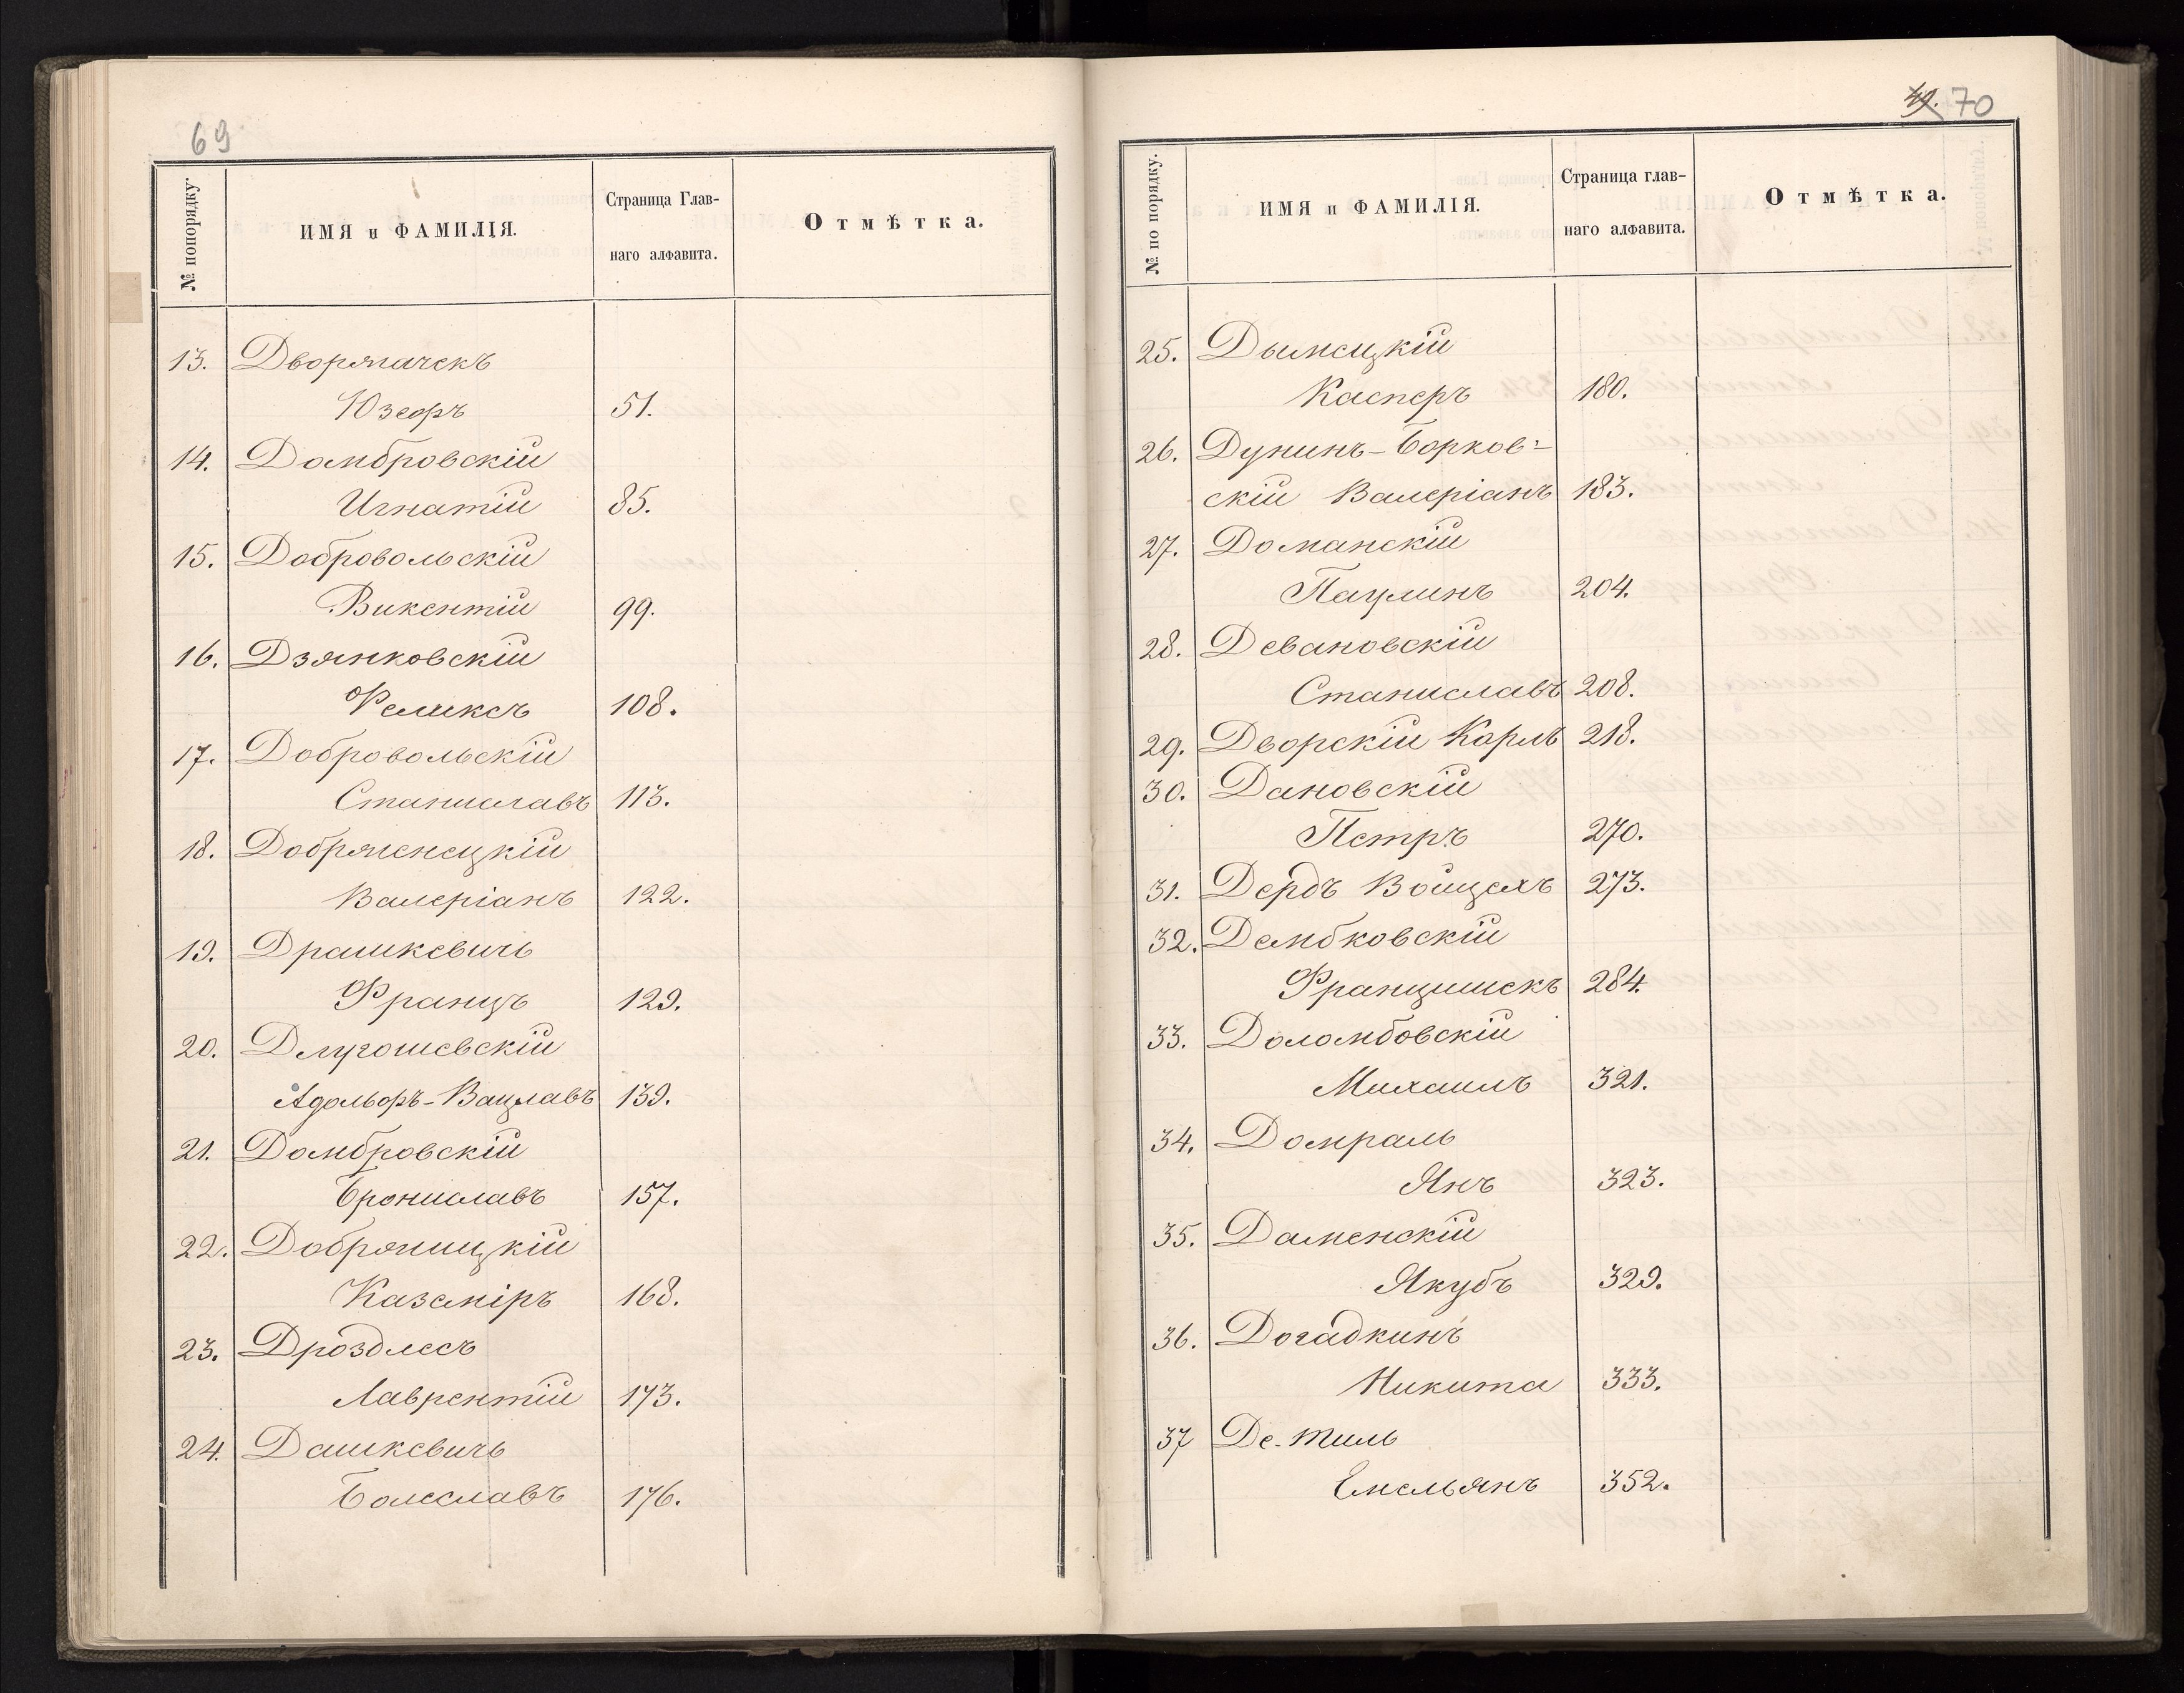 69
№ попорядку.
ИМЯ и ФАМИЛІЯ.
Страница Глав-
наго алфавита.
Отмѣтка.
13. Дворячекъ
Юзефъ 51.
14. Домбровскій
Игнатій 85.
15. Добровольскій
Викентій 99.
16. Дзянковскій
Феликсъ 108.
17. Добровольскій
Станиславъ 113.
18. Добрженецкій
Валеріанъ 122.
19. Драшкевичъ
Францъ 129.
20. Длугошевскій
Адольфъ-Вацлавъ 139.
21. Домбровскій
Брониславъ 157.
22. Добряницкій
Каземіръ 168.
23. Дроздлесъ
Лаврентій 173.
24. Дашкевичъ
Болеславъ 176.
70
№ по порядку.
ИМЯ и ФАМИЛІЯ.
Страница глав-
наго алфавита.
Отмѣтка.
25. Дымецкій
Касперъ 180.
26. Дунинъ-Борков-
скій Валеріанъ 183.
27. Доманскій
Паулинъ 204.
28. Девановскій
Станиславъ 208.
29. Дворскій Карлъ 218.
30. Дановскій
Петръ 270.
31. Дердъ Войцехъ 273.
32. Дембковскій
Францишекъ 284.
33. Доломбовскій
Михаилъ 321.
34. Домраль
Янъ 323.
35. Даменскій
Якубъ 329.
36. Догадкинъ
Никита 333.
37 Де-Тиль
Емельянъ 352.